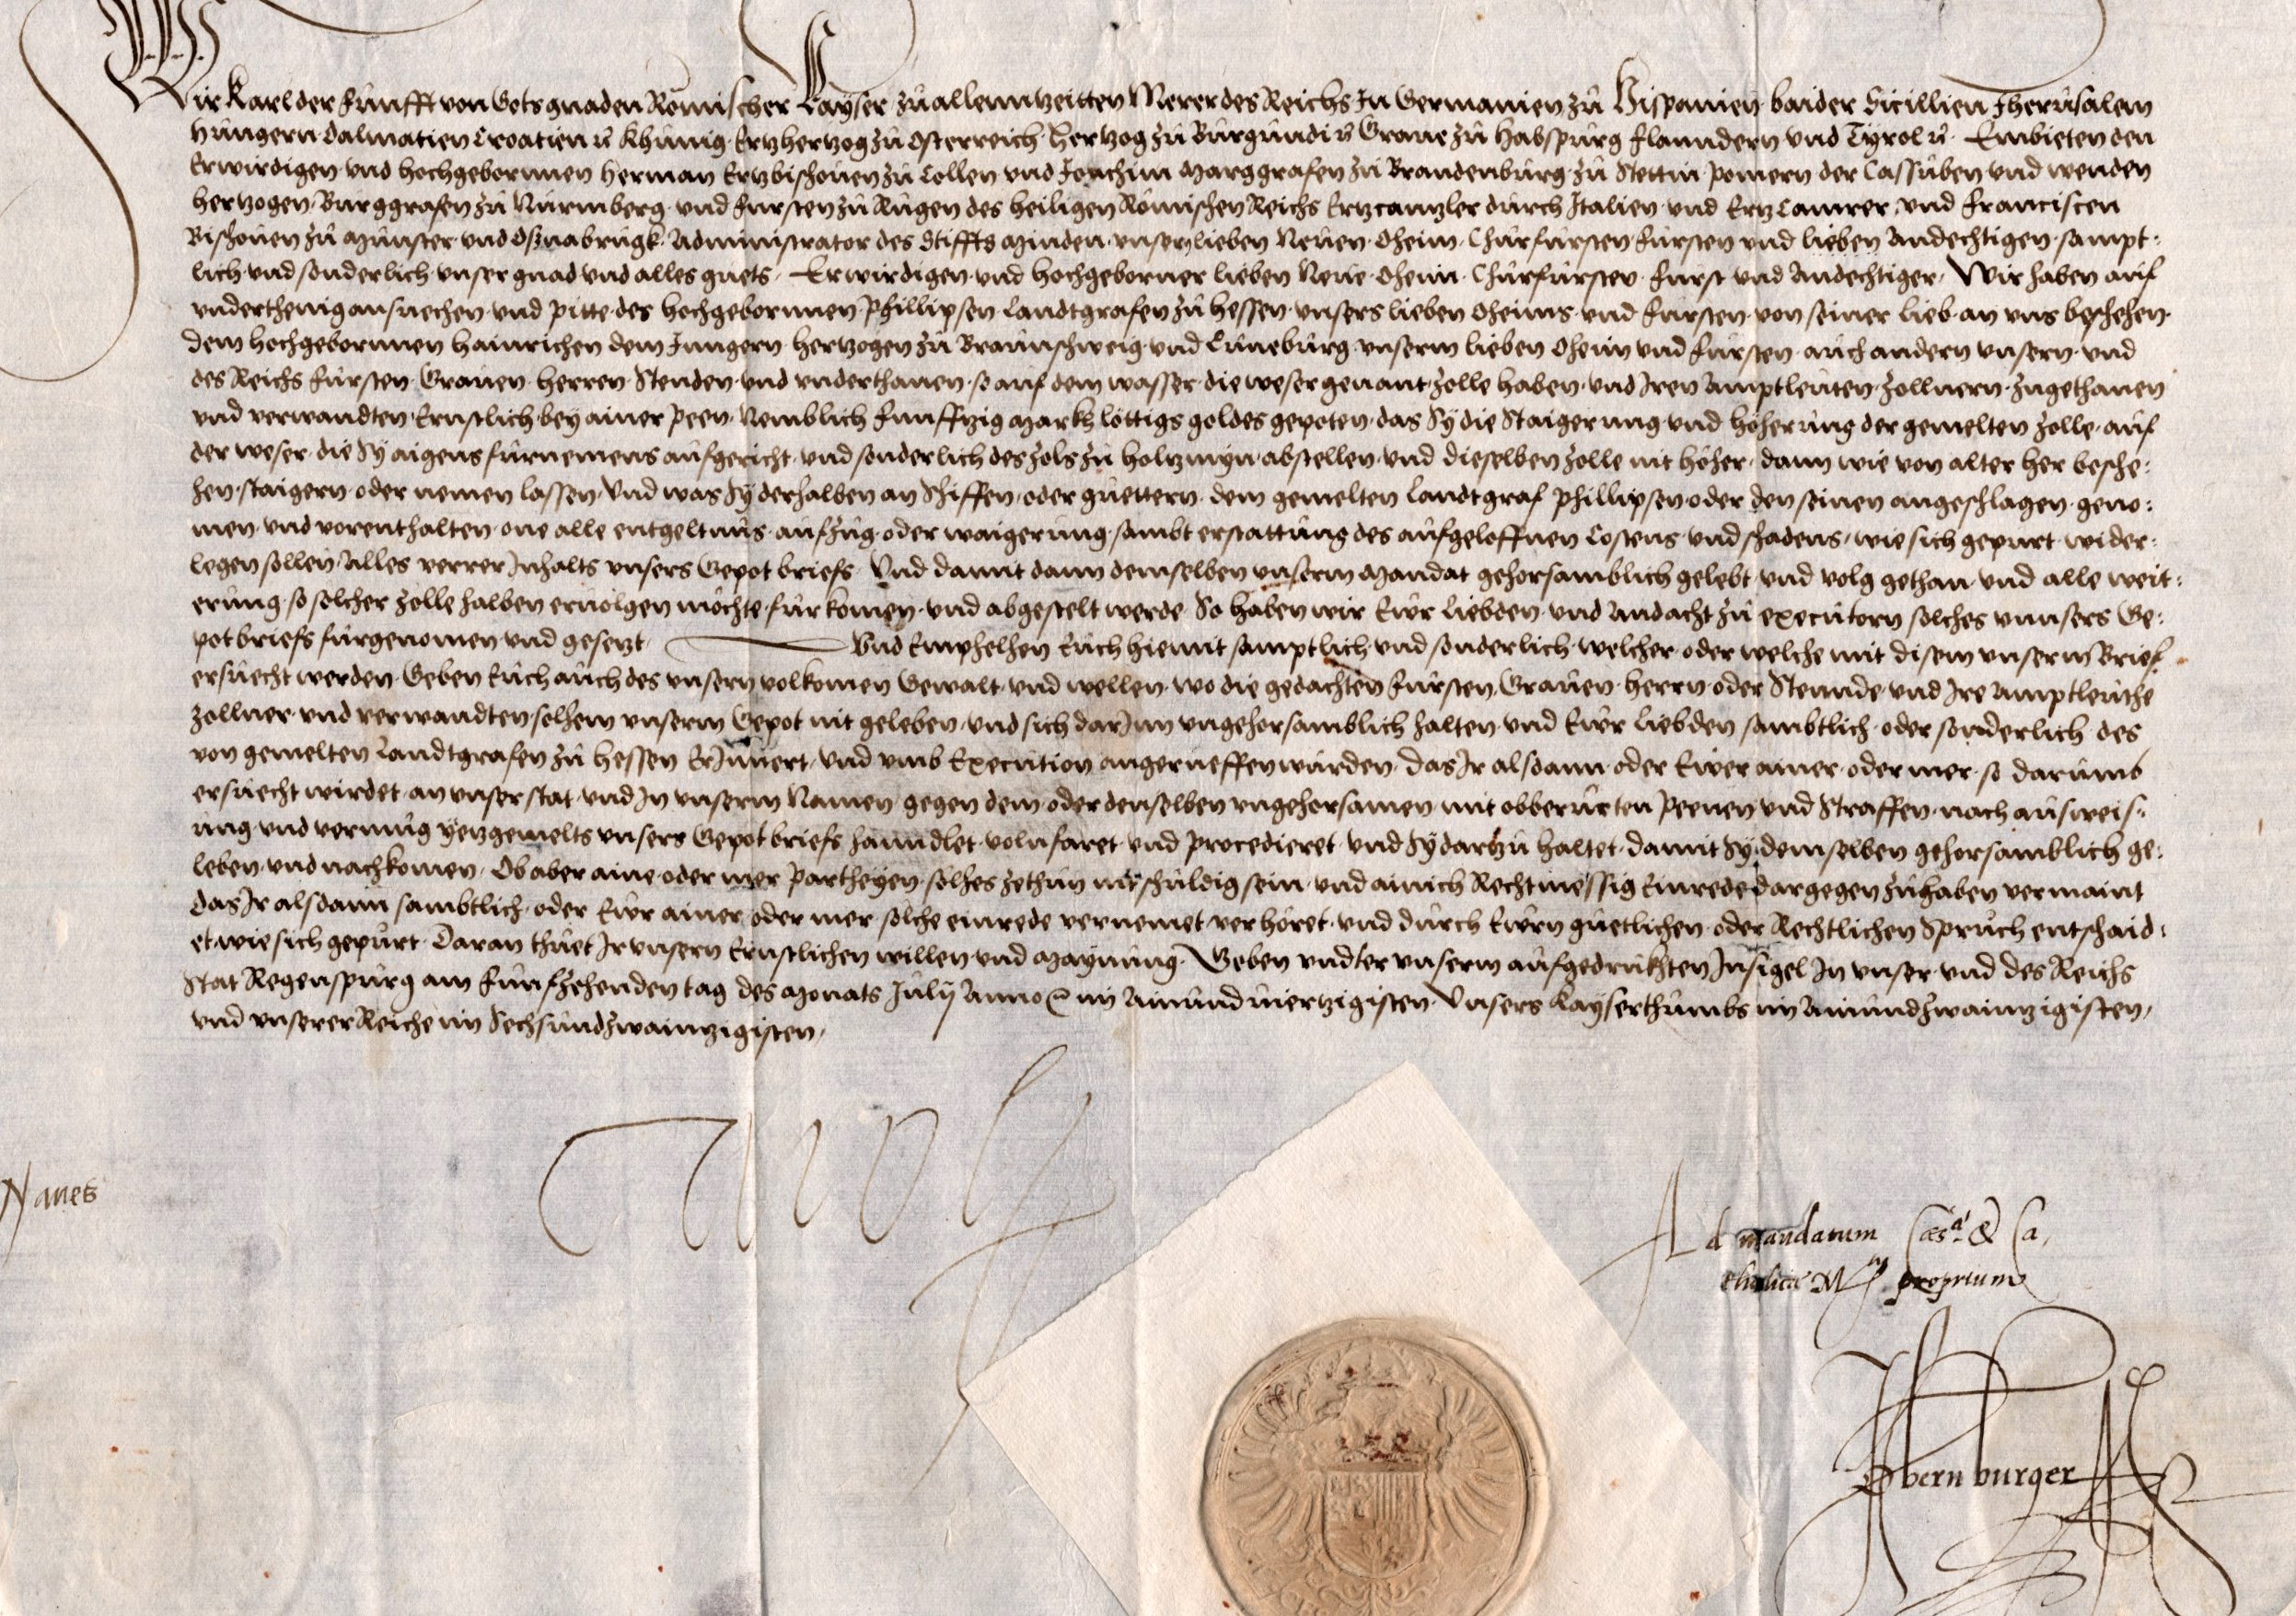 Wir Karl der Fünfft von Gots gnaden Römischer Kayser zů allenntzeitten Merer des Reichs In Germanien zů Hispanien baider Sicillien Jherusalem
Hungern Dalmatien Croatien rc Khünig Ertzhertzog zů Osterreich Hertzog zů Burgundi rc Graue zů Habspurg Flanndern vnd Tyrol rc Embieten den
Erwirdigen vnd hochgebornnen Herman Ertzbischouen zů Collen vnd Joachim Marggrafen zů Brandenburg zů Stettin Pomern der Cassuben vnd wenden
hertzogen Burggrafen zů Nürmberg vnd Fürsten zů Rugen des heiligen Römischen Reichs Ertzcanntzler durch Italien vnd ErtzCamrer, vnd Franciscen
Bischouen zů Münster vnd Oßnabrügk Administrator des Stiffts Minden vnsern lieben Neuen Oheim Churfürsten Fürsten vnd lieben Andechtigen sampt-
lich vnd sonderlich vnser gnad vnd alles guets. Erwirdigen vnd hochgeborner lieben Neue Oheim Churfürsten Fürst vnd Andechtiger, Wir haben auf
vnderthenig ansuechen vnd pitte des hochgebornnen Phillipsen Landtgrafen zů Hessen vnsers lieben Oheims vnd Fürsten von seiner Lieb an vns beschehen
dem hochgebornnen Hainrichen dem Jungern Hertzogen zů Braunschweig vnd Luneburg vnserm lieben Oheim vnd Fürsten auch andern vnsern vnd
des Reichs Fürsten Grauen Herren Stenden vnd vnderthanen so auf dem wasser die weser genant Zolle haben vnd Iren Amptleuten Zollnern Zugethanen
vnd verwandten Ernstlich bey ainer Peen Nemblich Funfftzig Markh löttigs goldes gepoten das Sy die Staigerung vnd höherung der gemelten Zolle auf
der weser die Sy aigens fürnemens aufgericht vnd sonderlich des Zols zů Holtzmyn abstellen vnd dieselben Zolle nit höher dann wie von alter her besche-
hen staigern oder nemen lassen Vnd was Sy derhalben an Schiffen oder guettern dem gemelten Landtgraf Phillipsen oder den seinen angeschlagen geno-
men vnd vorenthalten one alle entgeltnus aufzug oder waigerung sambt erstattung des aufgeloffnen Costens vnd schadens wie sich gepurt wider-
legen sollen Alles verrer Inhalts vnsers Gepotbriefs Vnd damit dann demselben vnserm Mandat gehorsamblich gelebt vnd volg gethan vnd alle weit-
erung so solcher Zolle halben eruolgen möchte fürkomen vnd abgestelt werde So haben wir Ewr Liebden vnd Andacht zů executorn solches vnnsers Ge-
potbriefs fürgenomen vnd gesetzt Vnd Emphelhen Euch hiemit samptlich vnd sonderlich welcher oder welche mit disem vnserm Brief
ersuecht werden Geben Euch auch des vnsern volkomen Gewalt vnd wellen wo die gedachten Fürsten Grauen Herrn oder Stennde vnd Ire Amptleuthe
Zollner vnd verwandten solhem vnserm Gepot nit geleben vnd sich darInn vngehorsamblich halten vnd Ewr Liebden sambtlich oder sonderlich des
von gemelten Landtgrafen zů Hessen ErInnert vnd vmb Execution angerueffen wurden das Ir alsdann oder Ewer ainer oder mer so darumb
ersuecht wirdet an vnser stat vnd In vnserm Namen gegen dem oder denselben vngehorsamen mit obberurten Peenen vnd Straffen nach ausweis-
ung vnd vermug yetzgemelts vnsers Gepotbriefs hanndlet volnfaret vnd procedieret vnd Sy dartzů haltet damit Sy demselben gehorsamblich ge-
leben vnd nachkomen. Ob aber aine oder mer Partheyen solhes zethun nit schuldig sein vnd ainich Rechtmessig Einrede dargegen zůhaben vermaint
das Ir alsdann sambtlich oder Ewr ainer oder mer solche einrede vernemet verhöret vnd durch Ewrn guetlichen oder Rechtlichen Spruch entschaid-
et wie sich gepurt Daran thuet Ir vnsern Ernstlichen willen vnd Maynung. Geben vndter vnserm aufgedrukhten Insigel In vnser vnd des Reichs
Stat Regenspurg am Fünfzehenden tag des Monats July Anno rc im Ainundviertzigisten Vnsers Kayserthumbs im Ainundzwaintzigisten
vnd vnserer Reiche im Sechsundzwaintzigisten
Carolus
Naues
Ad mandatum Caesae & Ca
tholicae Mtis proprium
Obernburger